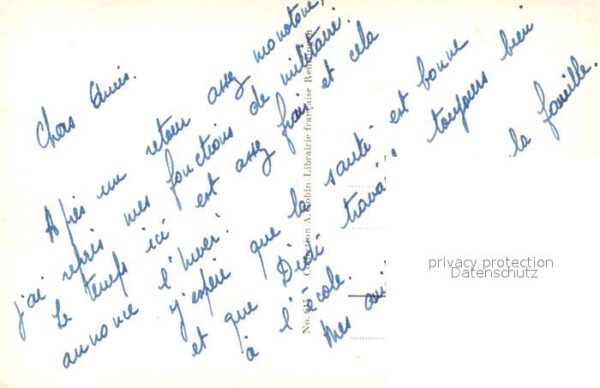 Chers Amis.
Après un retour assez monotone,
j'ai repris mes fonctions de militaire.
Le temps ici est assez frais et cela
annonce l'hiver.
J'espère que la santé est bonne
et que Didi travai toujours bien
à l'école.
Mes ami la famille.
No. 615 Collection A. Robin Librairie française
privacy protection
Datenschutz